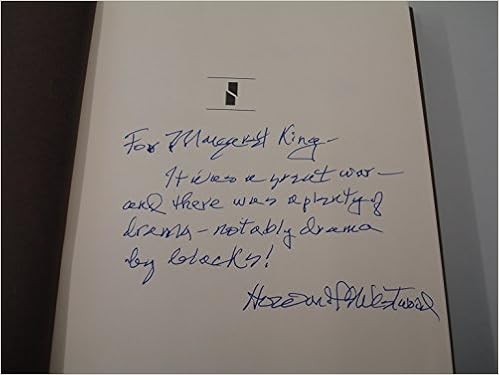 For Margaret King-
It was a great war-
and there was a plenty of
drama-notably drama
by blacks!
Howard C. Westwood